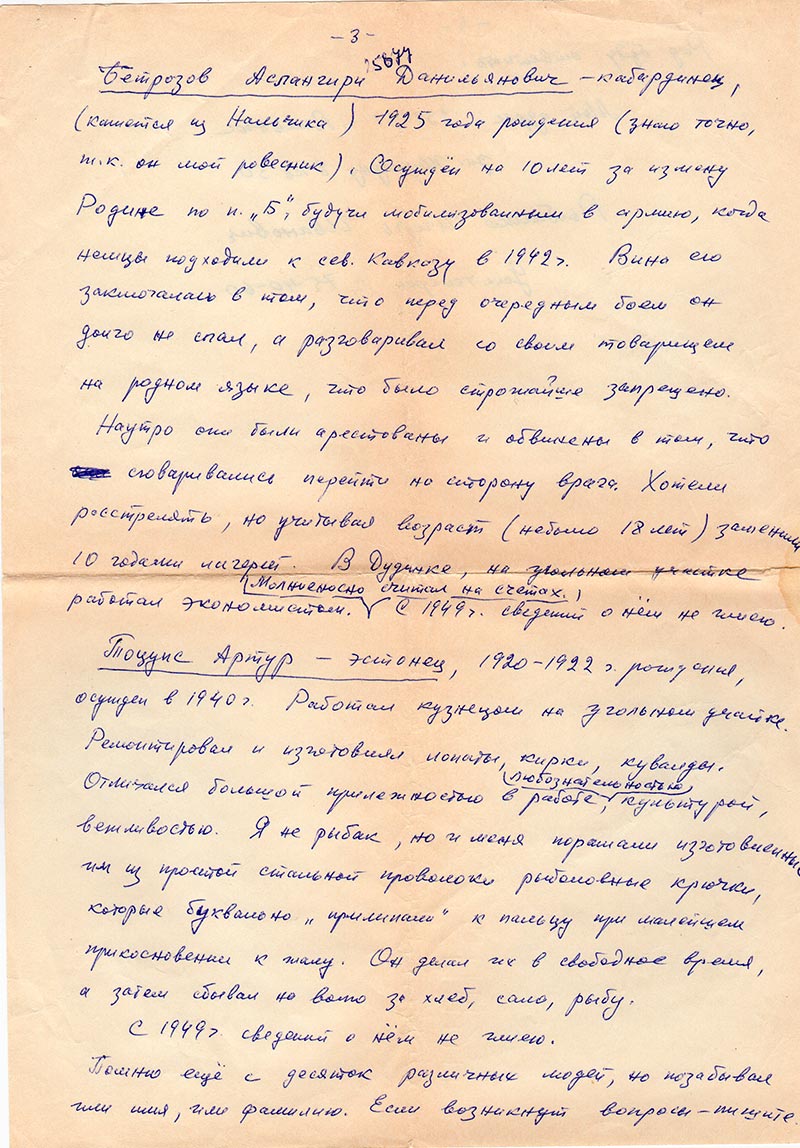 -3-
15677
Бетрозов Аслангири Данильянович - кабардинец,
(кажется из Нальчика) 1925 года рождения (знаю точно,
т.к. он мой ровесник). Осуждён на 10 лет за измену
Родине по п. „Б", будучи мобилизованным в армию, когда
немцы подходили к сев. Кавказу в 1942 г. Вина его
заключалась в том, что перед очередным боем он
долго не спал, а разговаривал со своим товарищем
на родном языке, что было строжайше запрещено.
Наутро они были арестованы и обвинены в том, что
сговаривались перейти на сторону врага. Хотели
расстрелять, но учитывая возраст (небыло 18 лет) заменили
10 годами лагерей. В Дудинке, на угольном участке
(Молниеносно считал на счетах.)
работал экономистом. С 1949 г. сведений о нём не имею.
Тоцупс Артур - эстонец, 1920-1922 г. рождения,
осужден в 1940 г. Работал кузнецом на угольном участке.
Ремонтировал и изготовлял лопаты, кирки, кувалды.
любознательностью,
Отличался большой прилежностью в работе, культурой,
вежливостью. Я не рыбак, но и меня поражали изготовленные
им из простой стальной проволоки рыболовные крючки,
которые буквально „прилипали" к пальцу при малейшем
прикосновении к жалу. Он делал их в свободное время,
а затем сбывал на волю за хлеб, сало, рыбу.
С 1949 г. сведений о нём не имею.
Помню ещё с десяток различных людей, но позабывал
или имя, или фамилию. Если возникнут вопросы - пишите.